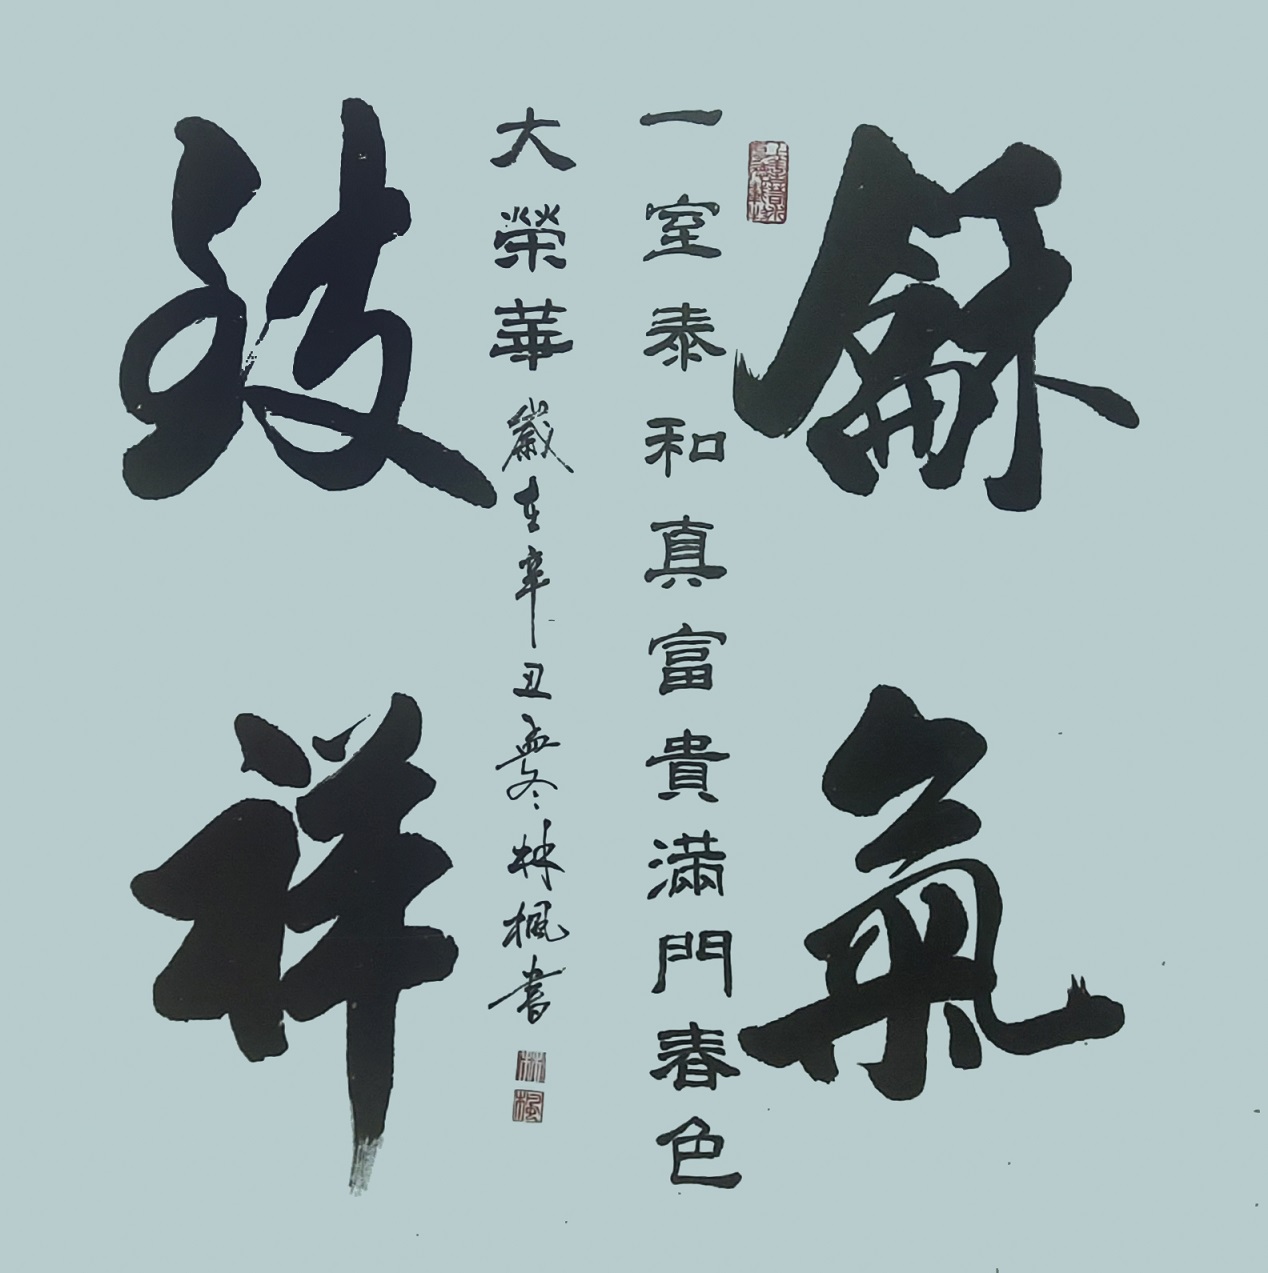 龢氣
一室泰和真富貴滿門春色
大榮華歲在辛丑孟冬林楓書
林楓
致祥